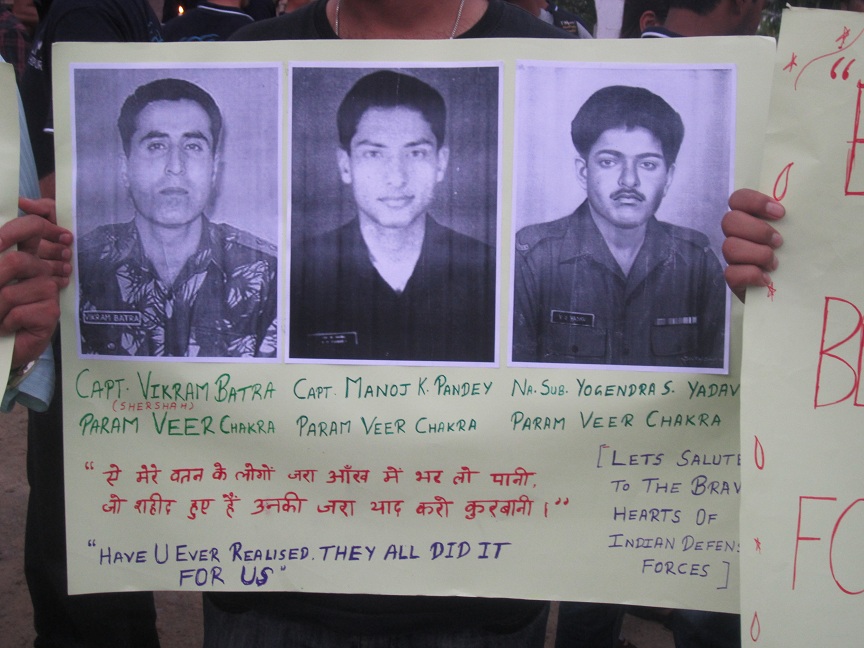 VIKRAM BATRA
CAPT. VIKRAM BATRA
(SHERSHAH)
PARAM VEER CHAKRA
CAPT. MANOJ K. PANDEY
PARAM VEER CHAKRA
NA. SUB. YOGENDRA S. YADAV
PARAM VEER CHAKRA
“ऐ मेरे वतन के लोगों जरा आँख में भर लो पानी,
जो शहीद हुए हैं उनकी जरा याद करो कुरबानी।”
“HAVE U EVER REALISED. THEY ALL DID IT
FOR US”
[LETS SALUTE
TO THE BRAV
HEARTS OF
INDIAN DEFENS
FORCES]